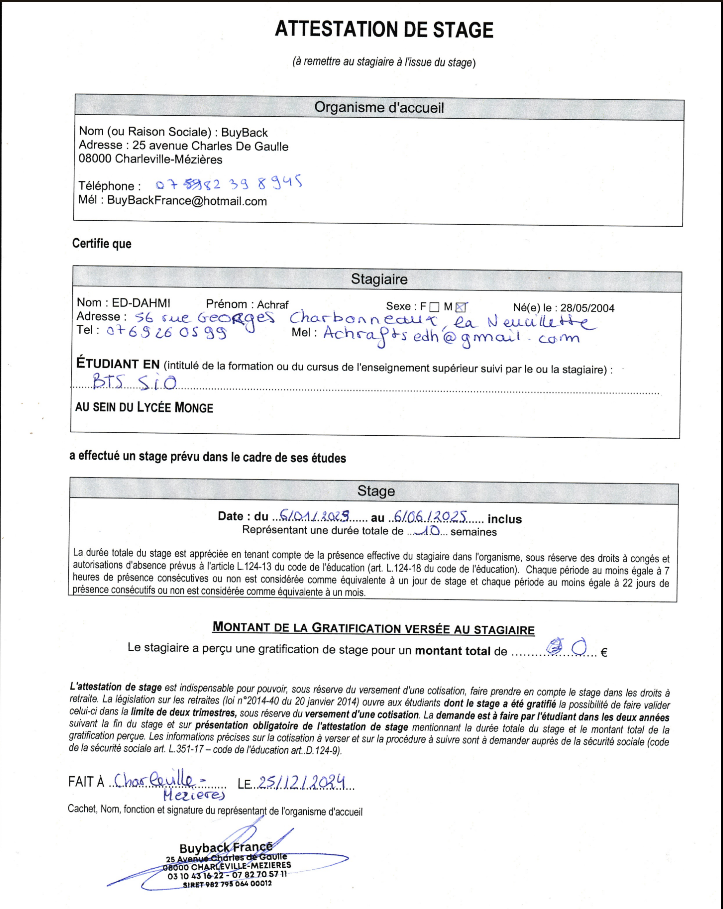 ATTESTATION DE STAGE
(à remettre au stagiaire à l'issue du stage)
Organisme d'accueil
Nom (ou Raison Sociale) : BuyBack
Adresse : 25 avenue Charles De Gaulle
08000 Charleville-Mézières
Téléphone :
Mél : BuyBackFrance@hotmail.com
Certifie que
Stagiaire
Nom : ED-DAHMI Prénom : Achraf Sexe : F ☐ M ☒ Né(e) le : 28/05/2004
Adresse : 56 rue GeoRges Charbonneaux, la Neuillette
Tel : 0769260599 Mel : Achrafts edh@gmail.com
ÉTUDIANT EN (intitulé de la formation ou du cursus de l'enseignement supérieur suivi par le ou la stagiaire) :
BTS SiO
AU SEIN DU LYCÉE MONGE
a effectué un stage prévu dans le cadre de ses études
Stage
Date : du 6/01/2025 au 6/06/2025 inclus
Représentant une durée totale de 10 semaines
La durée totale du stage est appréciée en tenant compte de la présence effective du stagiaire dans l'organisme, sous réserve des droits à congés et
autorisations d'absence prévus à l'article L.124-13 du code de l'éducation (art. L.124-18 du code de l'éducation). Chaque période au moins égale à 7
heures de présence consécutives ou non est considérée comme équivalente à un jour de stage et chaque période au moins égale à 22 jours de
présence consécutifs ou non est considérée comme équivalente à un mois.
MONTANT DE LA GRATIFICATION VERSÉE AU STAGIAIRE
Le stagiaire a perçu une gratification de stage pour un montant total de 0 €
L'attestation de stage est indispensable pour pouvoir, sous réserve du versement d'une cotisation, faire prendre en compte le stage dans les droits à
retraite. La législation sur les retraites (loi n°2014-40 du 20 janvier 2014) ouvre aux étudiants dont le stage a été gratifié la possibilité de faire valider
celui-ci dans la limite de deux trimestres, sous réserve du versement d'une cotisation. La demande est à faire par l'étudiant dans les deux années
suivant la fin du stage et sur présentation obligatoire de l'attestation de stage mentionnant la durée totale du stage et le montant total de la
gratification perçue. Les informations précises sur la cotisation à verser et sur la procédure à suivre sont à demander auprès de la sécurité sociale (code
de la sécurité sociale art. L.351-17 – code de l'éducation art..D.124-9).
FAIT À Charleville-
Mezieres LE 25/12/2024
Cachet, Nom, fonction et signature du représentant de l'organisme d'accueil
Buyback France
25 Avenue Charles de Gaulle
08000 CHARLEVILLE-MEZIERES
03 10 43 16 22 - 07 82 70 57 11
SIRET 982 795 064 00012